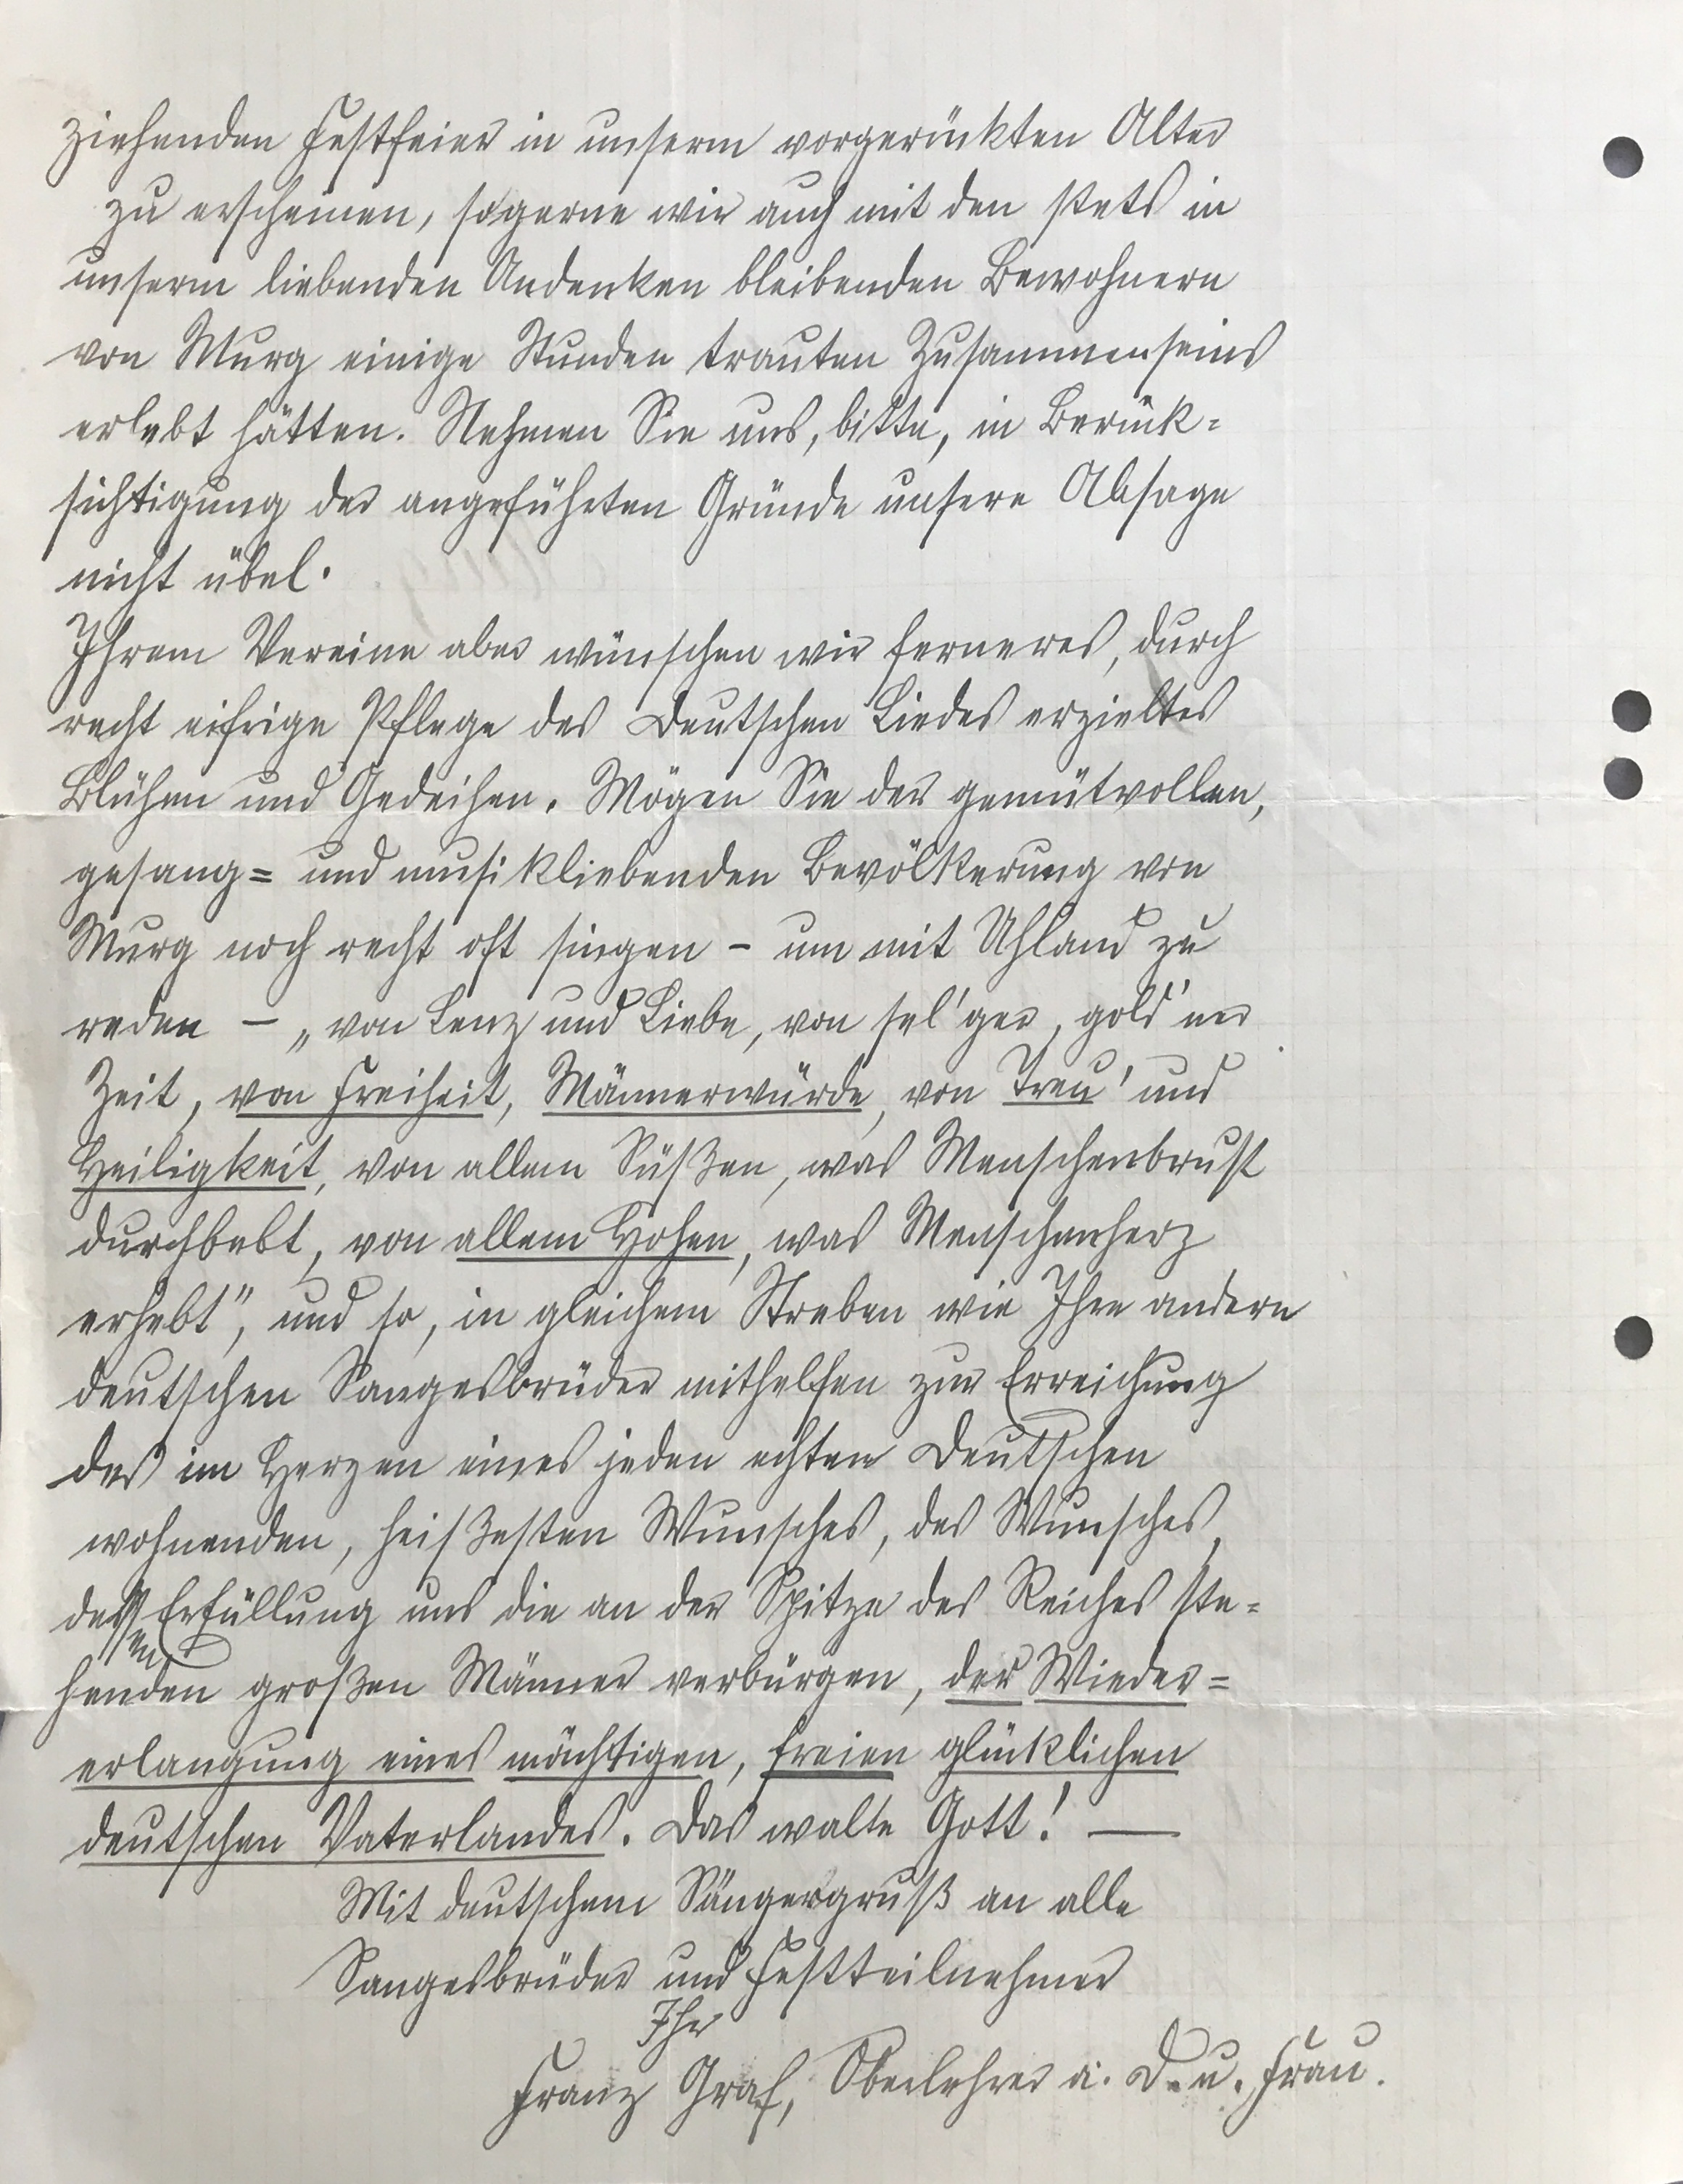 ziehenden Festfeier in unserm vorgerückten Alter
zu erscheinen, so gerne wir auch mit den stets in
unserm liebenden Andenken bleibenden Bewohnern
von Murg einige Stunden trauten Zusammenseins
erlebt hätten. Nehmen Sie uns, bitte, in Berück=
sichtigung der angeführten Gründe unsere Absage
nicht übel.
Ihrem Vereine aber wünschen wir ferneres, durch
recht eifrige Pflege des Deutschen Liedes erzieltes
Blühen und Gedeihen. Mögen Sie der gemütvollen,
gesang= und musikliebenden Bevölkerung von
Murg noch recht oft singen – um mit Uhland zu
reden – „von Lenz und Liebe, von sel'ger, gold'ner
Zeit, von Freiheit, Männerwürde, von Treu' und
Heiligkeit, von allem Süßen, was Menschenbrust
durchbebt, von allem Hohen, was Menschenherz
erhebt", und so, in gleichem Streben wie Ihre andern
deutschen Sangesbrüder mithelfen zur Erreichung
des im Herzen eines jeden echten Deutschen
wohnenden, heißesten Wunsches, des Wunsches,
dessen Erfüllung uns die an der Spitze des Reiches ste=
henden großen Männer verbürgen, der Wieder=
erlangung eines mächtigen, freien glücklichen
deutschen Vaterlandes. Das walte Gott! —
Mit deutschem Sängergruß an alle
Sangesbrüder und Festteilnehmer
Ihr
Franz Graf, Oberlehrer a. D. u. Frau.